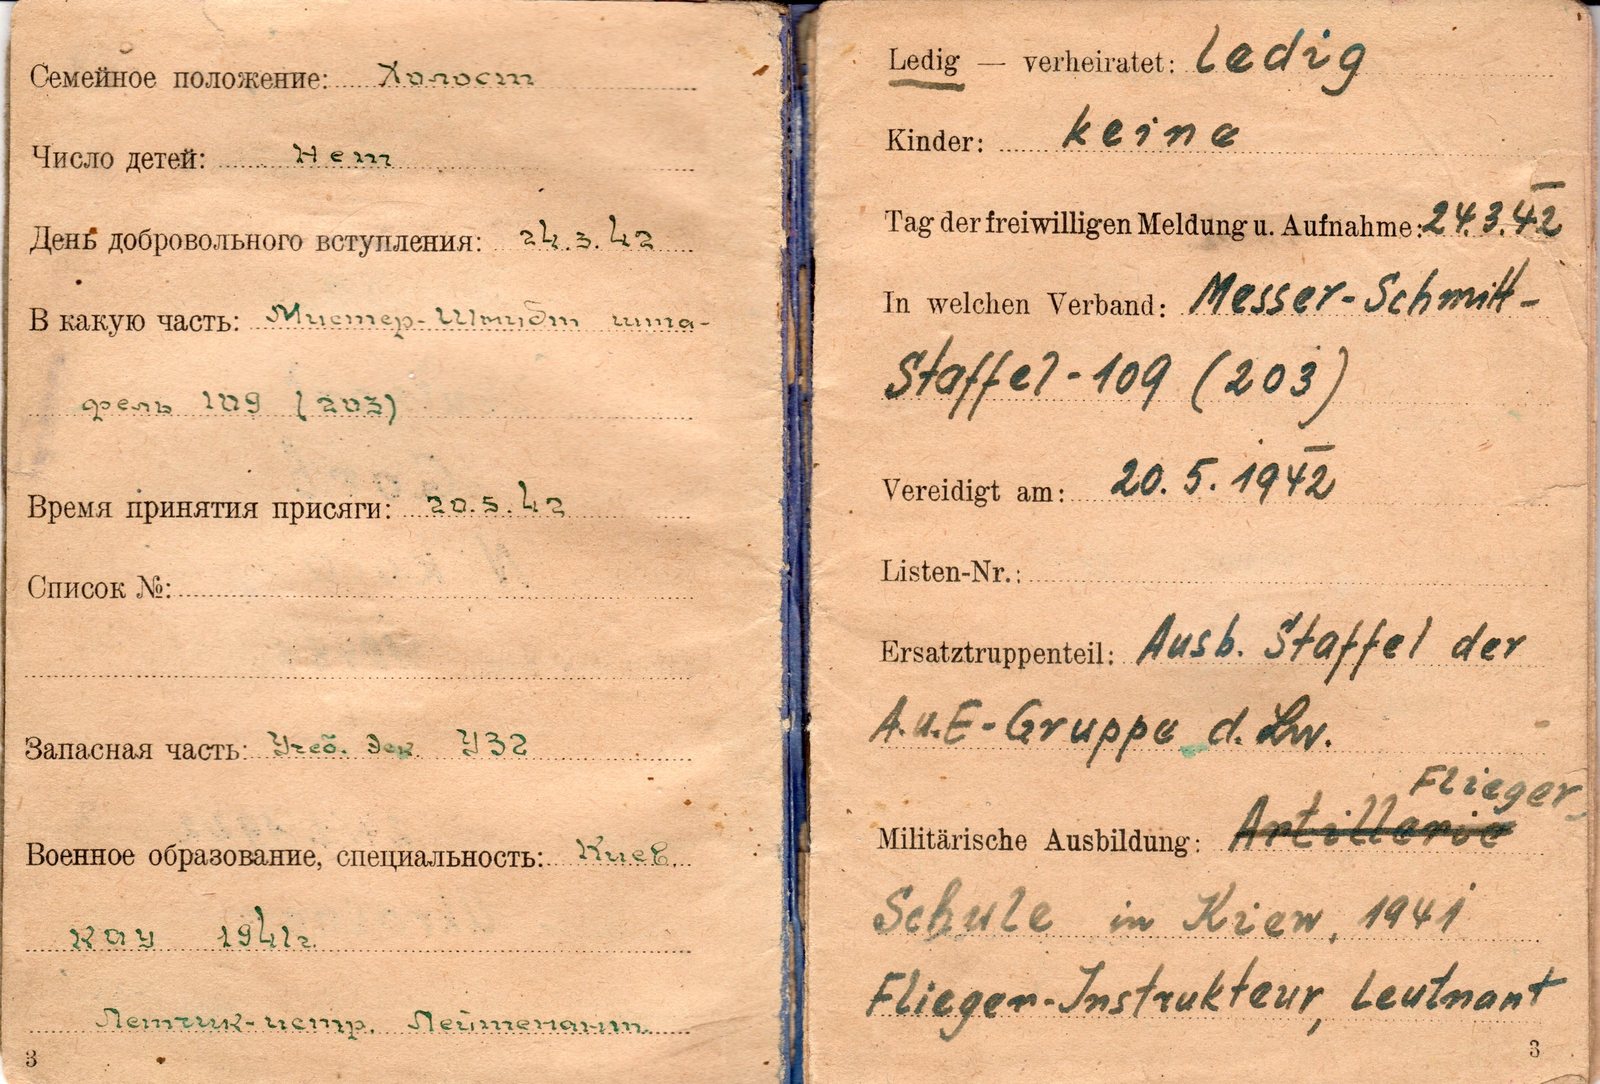 Семейное положение: Холост
Число детей: Нет
День добровольного вступления: 24.3.42
В какую часть: Мистер-Шмидт шта-
фель 109 (203)
Время принятия присяги: 20.5.42
Список №:
Запасная часть: Учеб. Эск. УЗ2
Военное образование, специальность: Киев.
КАУ 1941г.
Летчик-истр. Лейтенант.
3
Ledig — verheiratet: ledig
Kinder: keine
Tag der freiwilligen Meldung u. Aufnahme: 24.3.42
In welchen Verband: Messer-Schmitt-
Staffel-109 (203)
Vereidigt am: 20. 5. 1942
Listen-Nr.:
Ersatztruppenteil: Ausb. Staffel der
A.u.E-Gruppe d. Lw.
Flieger-
Militärische Ausbildung: Artillerie
Schule in Kiew, 1941
Flieger-Instrukteur, Leutnant
3